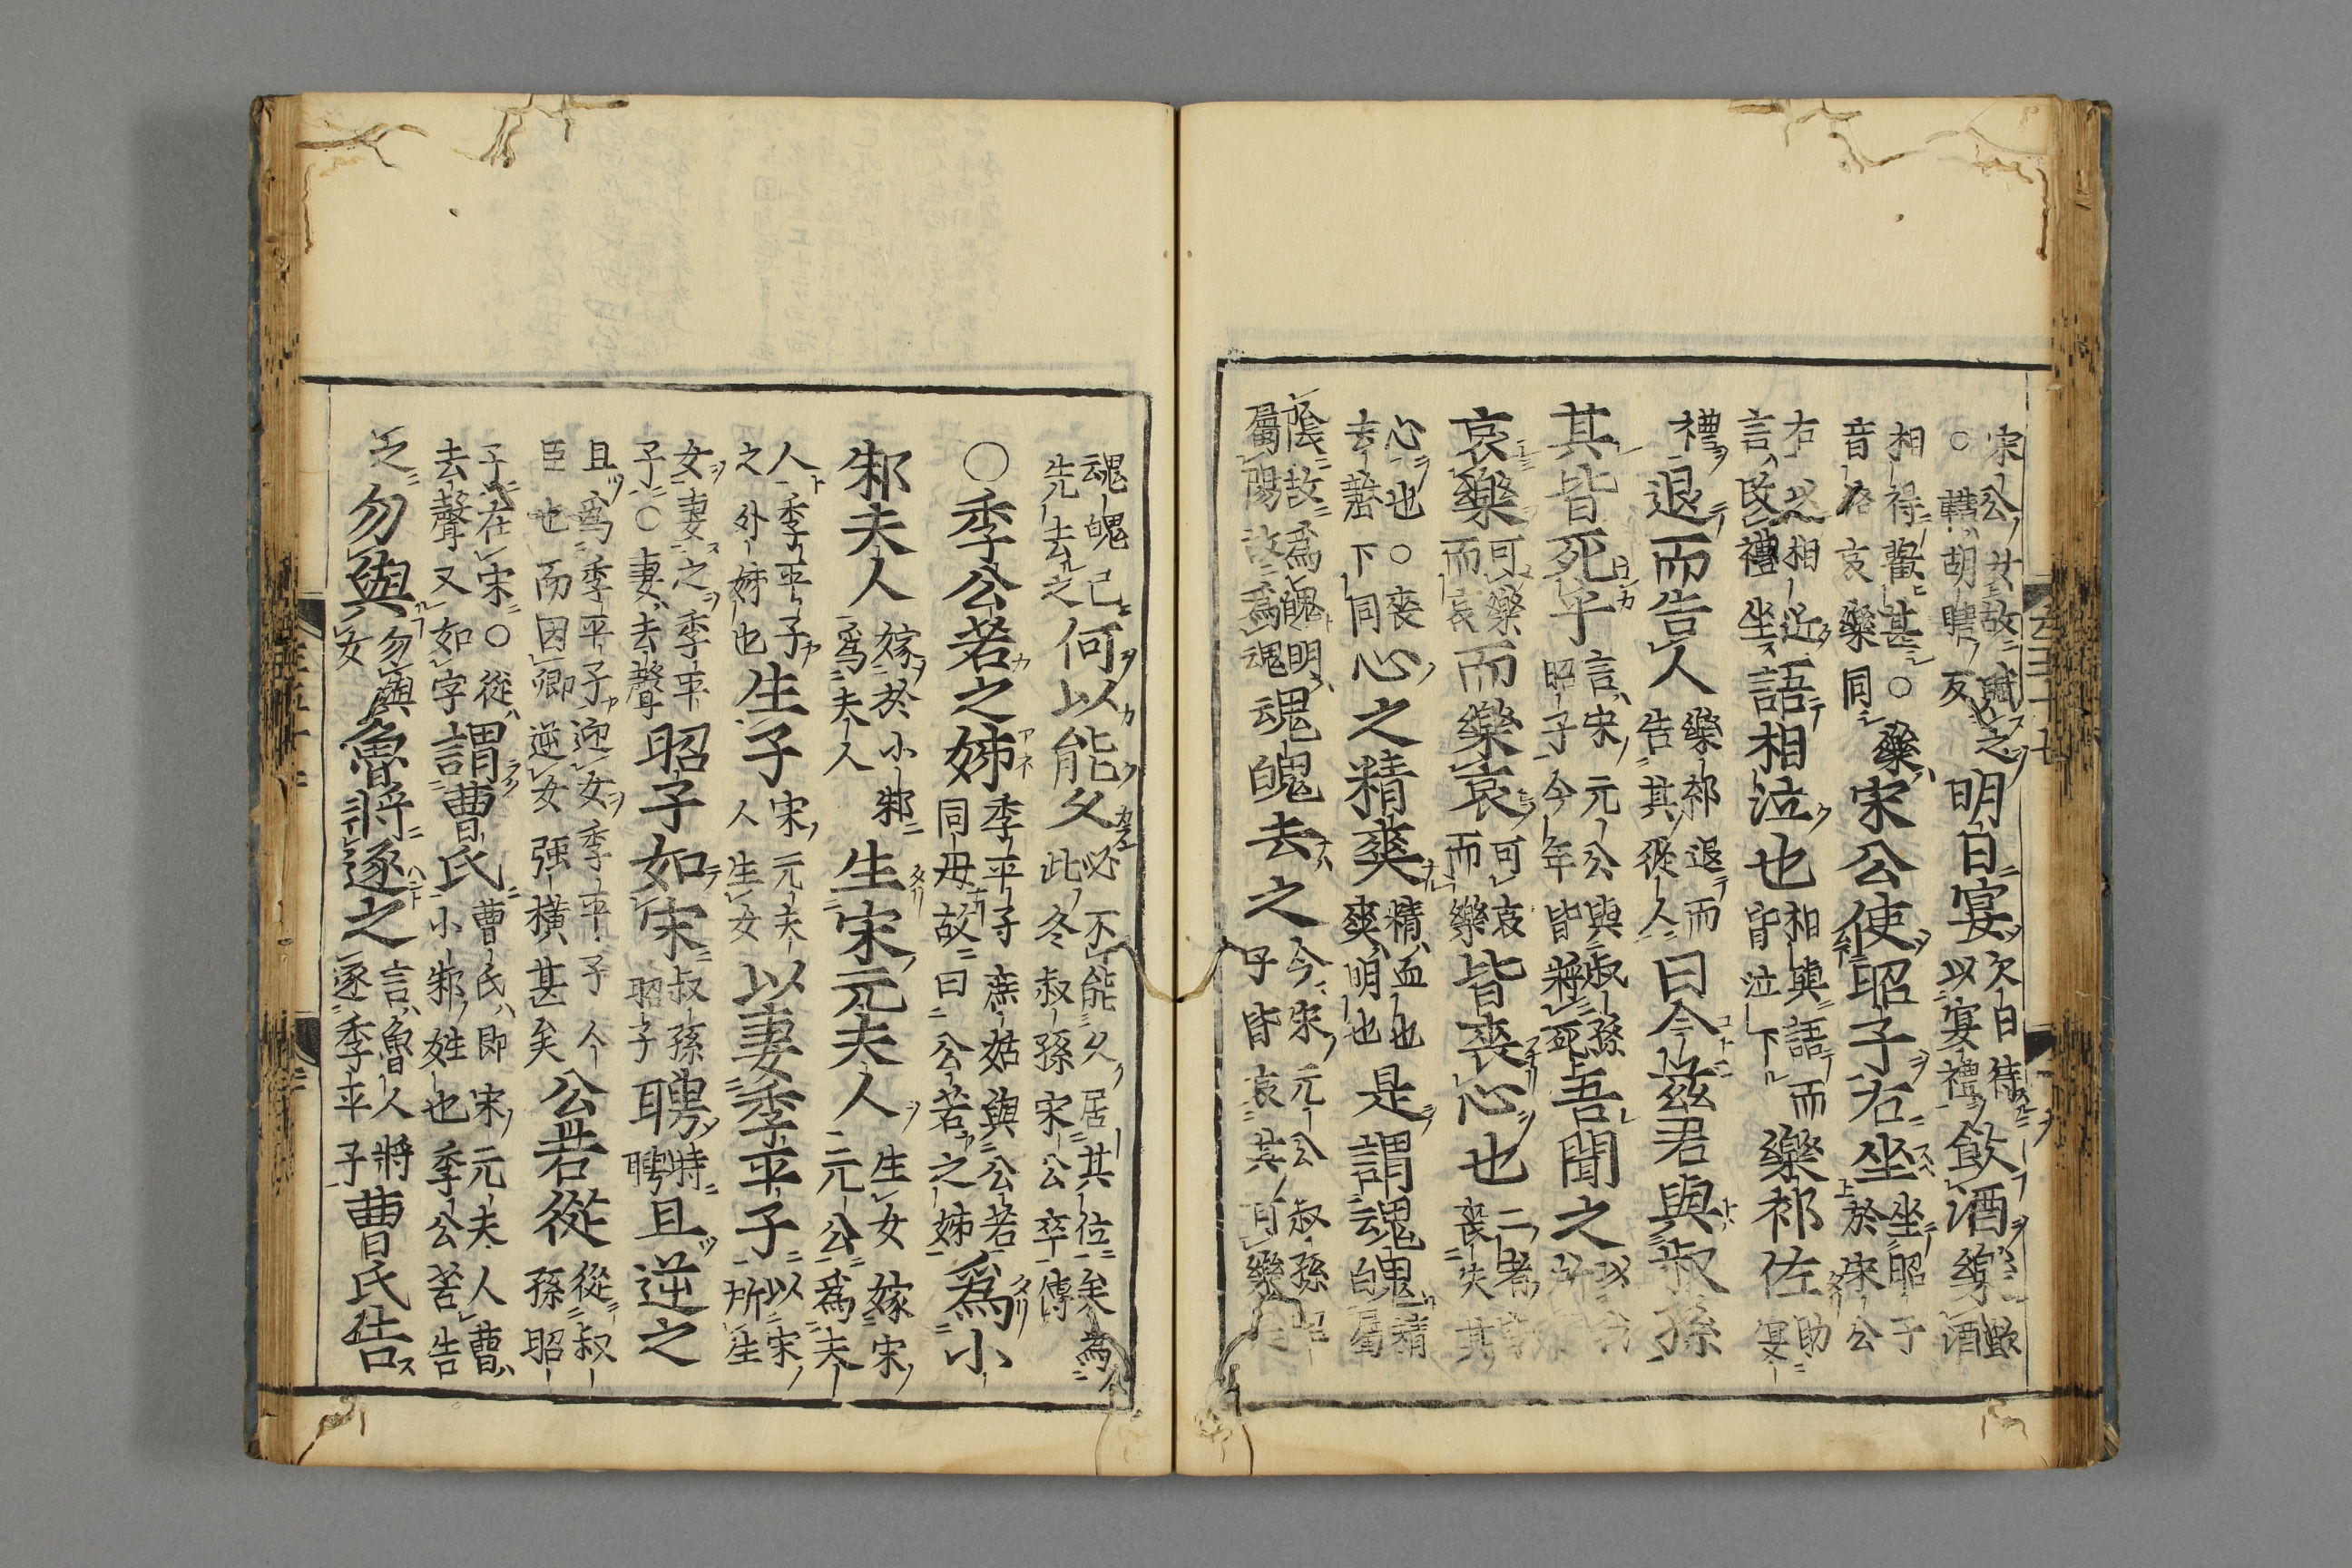 宋公女故賦之
○轄胡瞎反
明日宴
次日待
以宴禮
飲酒樂
歡
酒
相得歡甚○樂
音洛哀樂同
宋公使昭子右坐
坐昭子
於宋公
右以相近
言改禮坐
語相泣也
相與語而
皆泣下
樂祁佐
助
宴
禮
退而告人
樂祁退而
告其從人
曰今茲君與叔孫
其皆死乎
言宋元公與叔孫
昭子今年皆將死
吾聞之
哀樂
可樂
而哀
而樂哀
可哀
而樂
皆喪心也
二者
喪失其
心也○喪
去聲下同
心之精爽
精血也
爽明也
是謂魂魄
精
白屬
陰故爲魄明
屬陽故爲魂
魂魄去之
今宋元公叔孫昭
子皆哀其可樂
魂魄已
先去之
何以能久
必不能久居其位矣爲
此冬叔孫宋公卒傳
○季公若之姊
季平子庶姑與公若
同母故曰公若之姊
爲小
邾夫人
嫁於小邾
爲夫人
生宋元夫人
生女嫁宋
元公爲夫
人季平子
之外姊也
生子
宋元夫
人生女
以妻季平子
以宋
所生
女妻之季平
子○妻去聲
昭子如宋
叔孫
昭子
聘
時
聘
且逆之
且爲季平子迎女季平子今
臣也而因卿逆女强橫甚矣
公若從
從叔
孫昭
子在宋○從
去聲又如字
謂曹氏
曹氏即宋元夫人曹
小邾姓也季公若告
之
勿與
勿與
女
魯將逐之
言魯人將
逐季平子
曹氏告